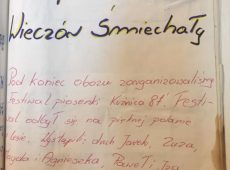 Wieczór Śmiechały
Pod koniec obozu zorganizowaliśmy
Festiwal piosenki Kuźnica 81. Festi-
wal odbył się na pięknej polanie
lesie. Wystąpili: druh Jarek, Zuza,
i Agnieszka, Paweł i Iza